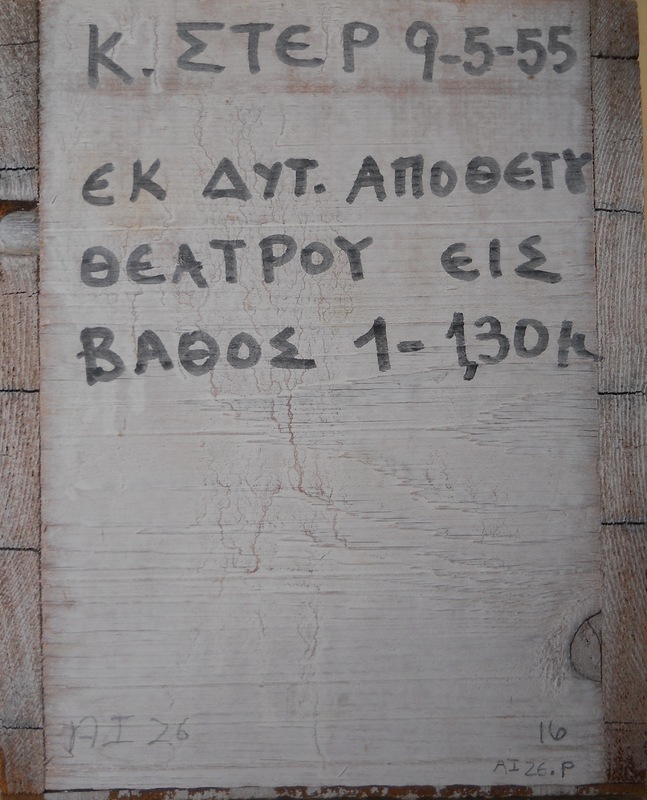 Κ. ΣΤΕΡ 9-5-55
ΕΚ ΔΥΤ. ΑΠΟΘΕΤΟΥ
ΘΕΑΤΡΟΥ ΕΙΣ
ΒΑΘΟΣ 1-1,30μ
ΑΙ 26
16
AI 26.P